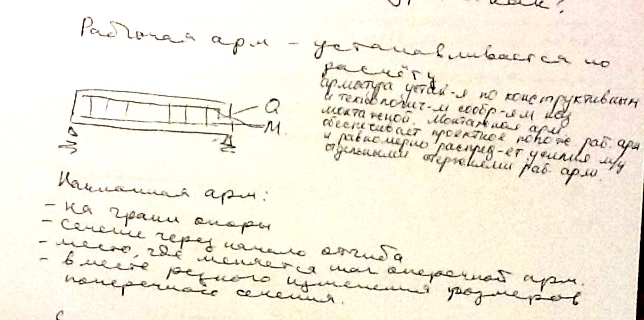 как?
Рабочая арм – устанавливается по
расчёту
арматура устан-я по конструктивным
и технологич-м сообр-ям наз
монтажной. Монтажная арм
обеспечивает проектное полож раб. арм
и равномерно распред-ет усилия м/у
отдельными стержнями раб. арм.
Q
M
Наклонная арм:
- на грани опоры
- сечение через начало отгиба
- место, где меняется шаг поперечной арм.
- в месте резкого изменения размеров
поперечного сечения.